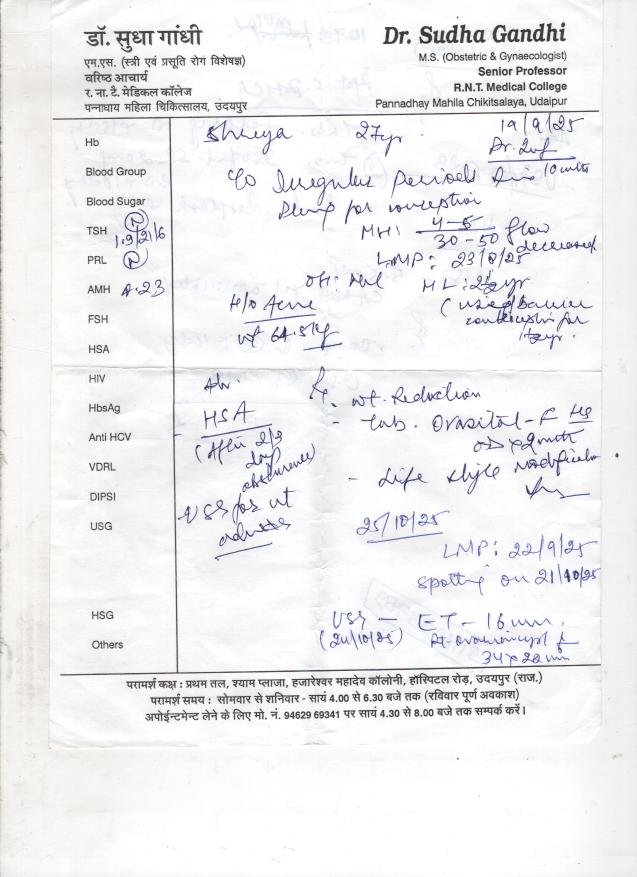 डॉ. सुधा गांधी
एम.एस. (स्त्री एवं प्रसूति रोग विशेषज्ञ)
वरिष्ठ आचार्य
र. ना. टै. मेडिकल कॉलेज
पन्नाधाय महिला चिकित्सालय, उदयपुर
Dr. Sudha Gandhi
M.S. (Obstetric & Gynaecologist)
Senior Professor
R.N.T. Medical College
Pannadhay Mahila Chikitsalaya, Udaipur
Shreya 27yr. 19/9/25
Hb
Blood Group
C/o Irregular periods 10 mths
Blood Sugar
for conception
TSH (N)
MH: 4-5
30-50 flow decreased
PRL (N)
LMP: 23/8/25
AMH 8.23
OH: Nil ML: 2½yr
H/o Acne
FSH
wt 64.5kg
HSA
HIV
Adv. Rx
- wt. Reduction
HbsAg
HSA
- Tab. Ovasitol-F
Anti HCV
(After 2/3 day abstinence)
VDRL
- Life style modification
DIPSI
USS for ut adnexa
USG
25/10/25
LMP: 22/9/25
Spotting on 21/10/25
HSG
USS - ET - 16 mm.
Others
(24/10/25)
34 x 22 mm
परामर्श कक्ष : प्रथम तल, श्याम प्लाजा, हजारेश्वर महादेव कॉलोनी, हॉस्पिटल रोड़, उदयपुर (राज.)
परामर्श समय : सोमवार से शनिवार - सायं 4.00 से 6.30 बजे तक (रविवार पूर्ण अवकाश)
अपोईन्टमेन्ट लेने के लिए मो. नं. 94629 69341 पर सायं 4.30 से 8.00 बजे तक सम्पर्क करें।